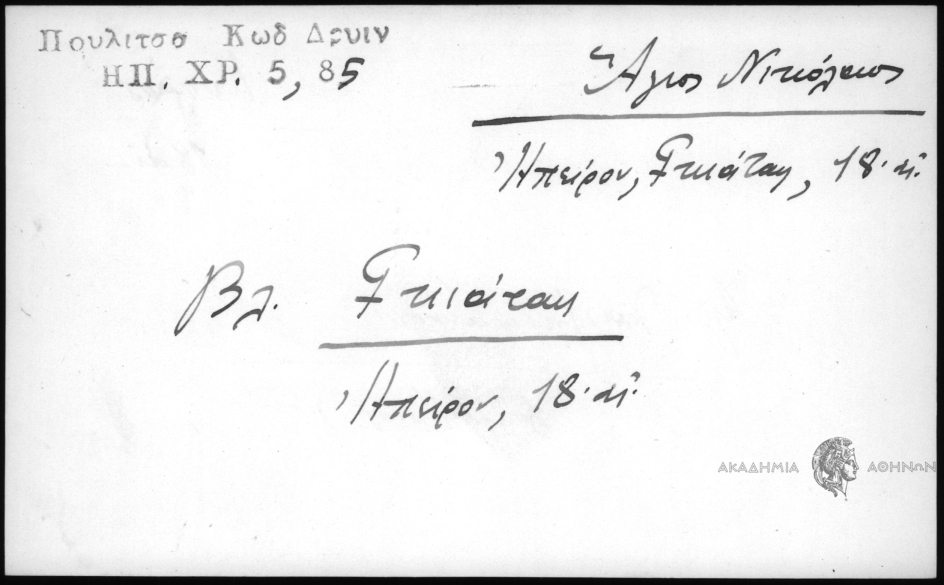 Πουλιτσα Κωδ Δρυιν
ΗΠ. ΧΡ. 5, 85
Ἅγιος Νικόλαος
Ἠπείρου, Γκιάτας, 18. αἰ.
Βλ. Γκιάτας
Ἠπείρου, 18. αἰ.
ΑΚΑΔΗΜΙΑ ΑΘΗΝΩΝ